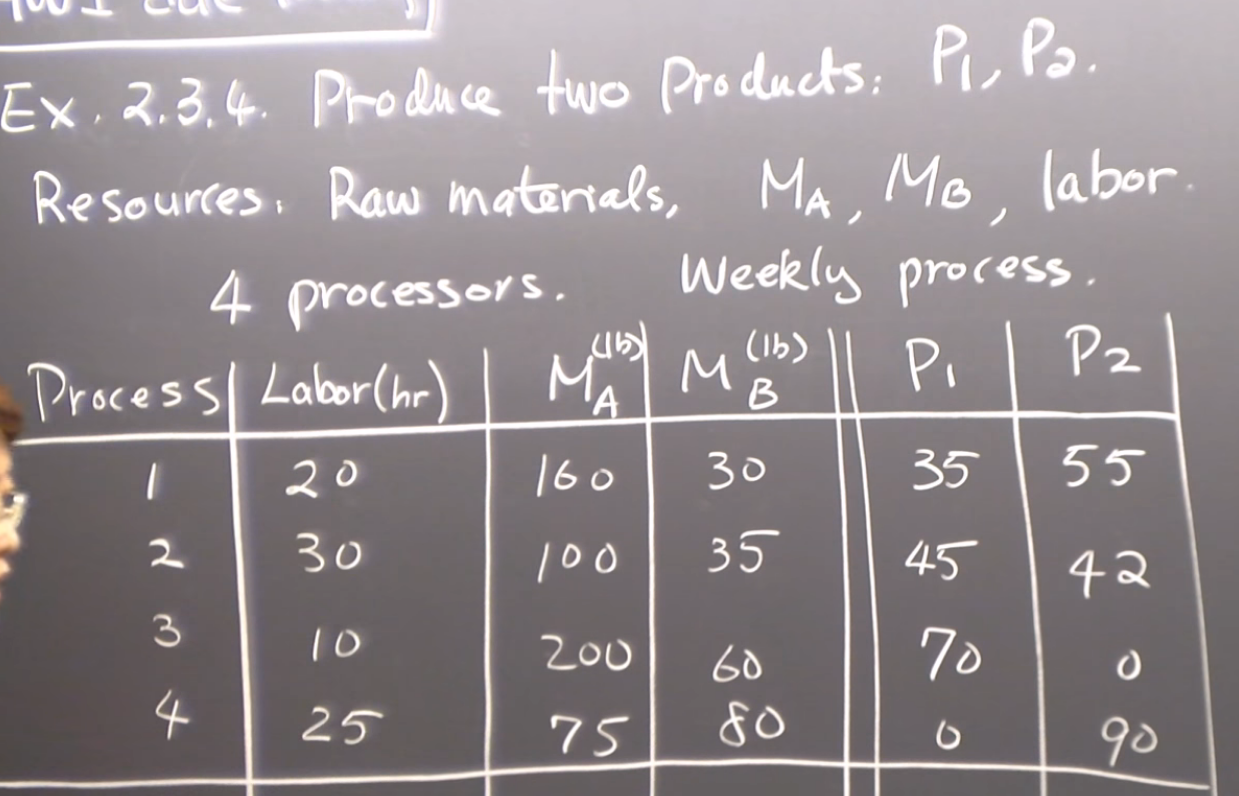 Ex. 2.3.4. Produce two Products: P1, P2.
Resources: Raw materials, MA, MB, labor.
4 processors. Weekly process.
Process Labor(hr) MA(lb) MB(lb) P1 P2
1 20 160 30 35 55
2 30 100 35 45 42
3 10 200 60 70 0
4 25 75 80 0 90